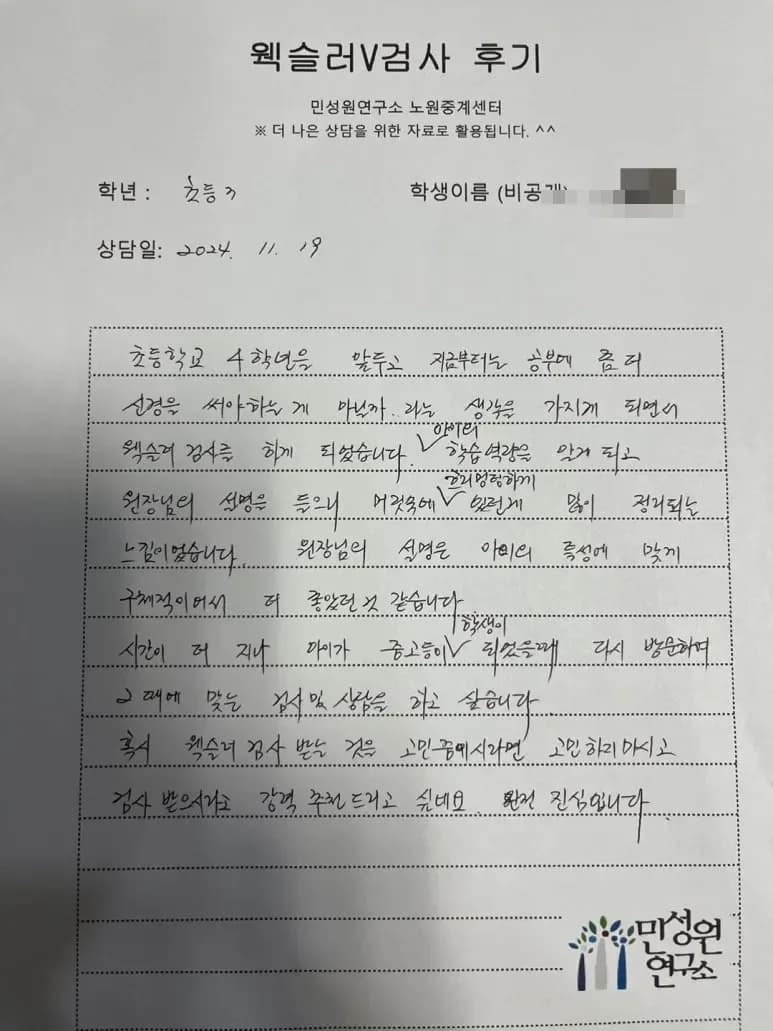 웩슬러V검사 후기
민성원연구소 노원중계센터
※ 더 나은 상담을 위한 자료로 활용됩니다. ^^
학년 : 초등3
학생이름 (비공개)
상담일: 2024. 11. 19
초등학교 4학년을 앞두고 지금부터는 공부에 좀 더
신경을 써야하는게 아닐까.. 라는 생각을 가지게 되면서
웩슬러 검사를 하게 되었습니다. 아이의 학습역량을 알게 되고
원장님의 설명을 들으니 머릿속에 흐리멍텅하게 있던게 많이 정리되는
느낌이었습니다. 원장님의 설명은 아이의 특성에 맞게
구체적이어서 더 좋았던것 같습니다.
시간이 더 지나 아이가 중고등이 학생이 되었을때 다시 방문하여
그 때에 맞는 검사 및 상담을 하고 싶습니다.
혹시 웩슬러 검사 받는 것을 고민중에시라면 고민하지마시고
검사 받으시라고 강력 추천 드리고 싶네요. 완전 진심입니다.
민성원
연구소